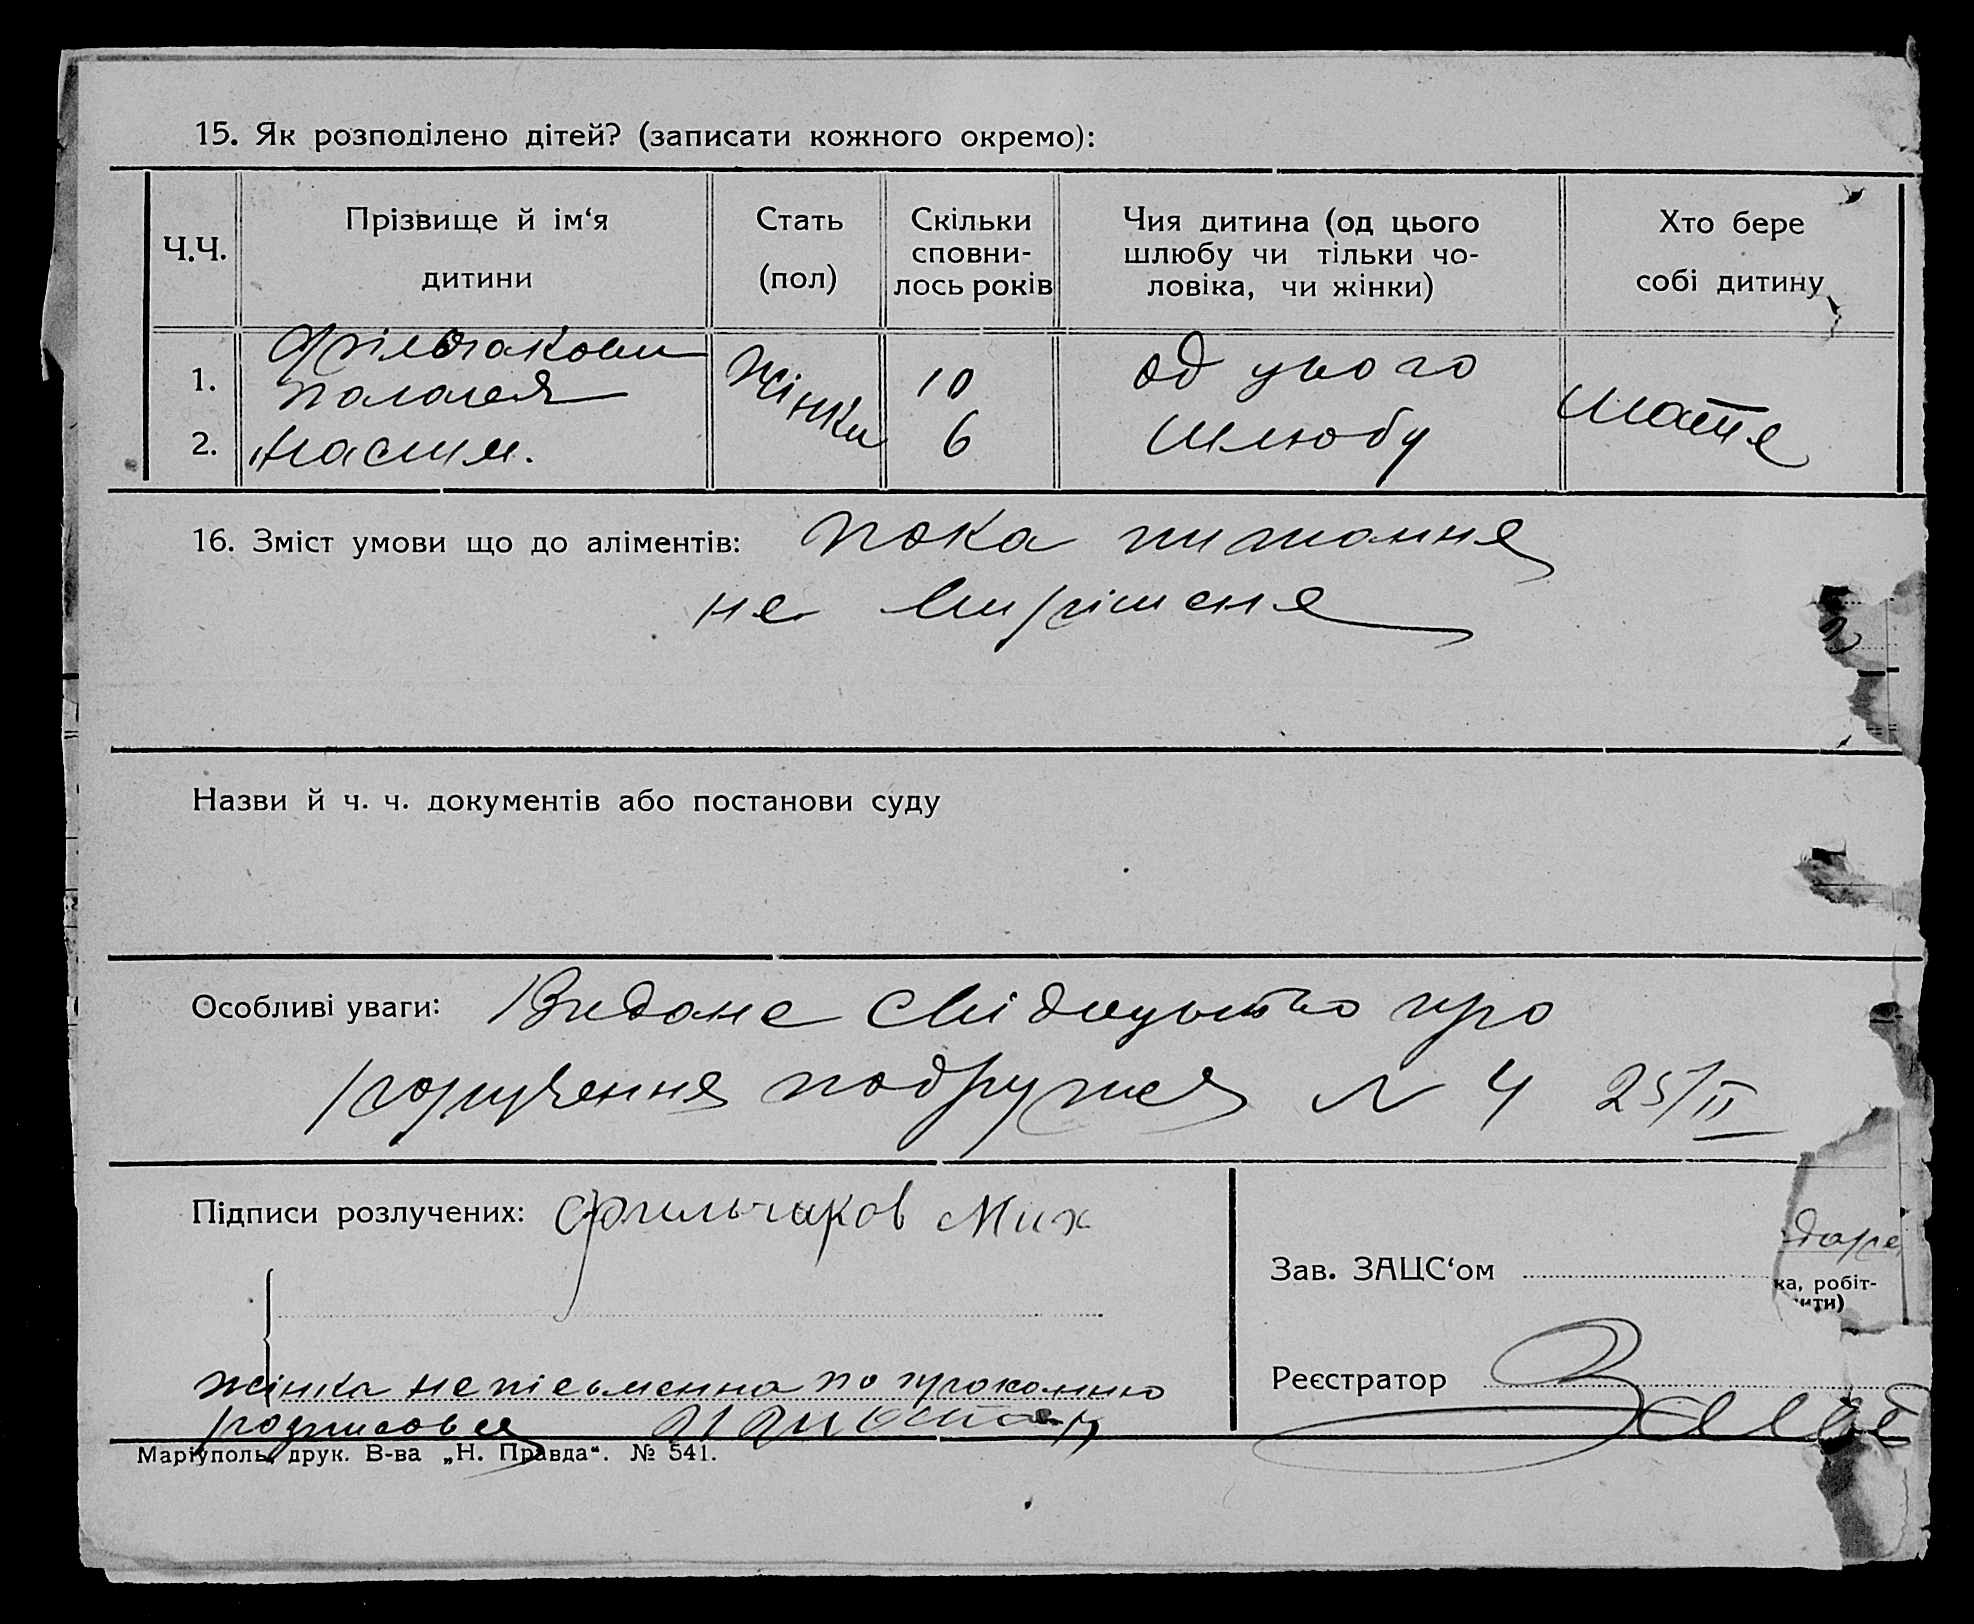 15. Як розподілено дітей? (записати кожного окремо):
Ч.Ч.
Прізвище й ім‘я
дитини
Стать
(пол)
Скільки
сповни-
лось років
Чия дитина (од цього
шлюбу чи тільки чо-
ловіка, чи жінки)
Хто бере
собі дитину
1.
Фільчакови
Палогея
жінки
10
од цього
2.
6
шлюбу
мате
16. Зміст умови що до аліментів: пока питання
не вирішене
Назви й ч. ч. документів або постанови суду
Особливі уваги: Видане свідоцьтво про
розлучення подружжя N 4 25/II
Підписи розлучених: Фильчаков Мих
Зав. ЗАЦС‘ом
ка, робіт-
ити)
Реєстратор
жінка неписьменна по проханню
розписовся
Маріуполь, друк. В-ва „Н. Правда“. № 541.